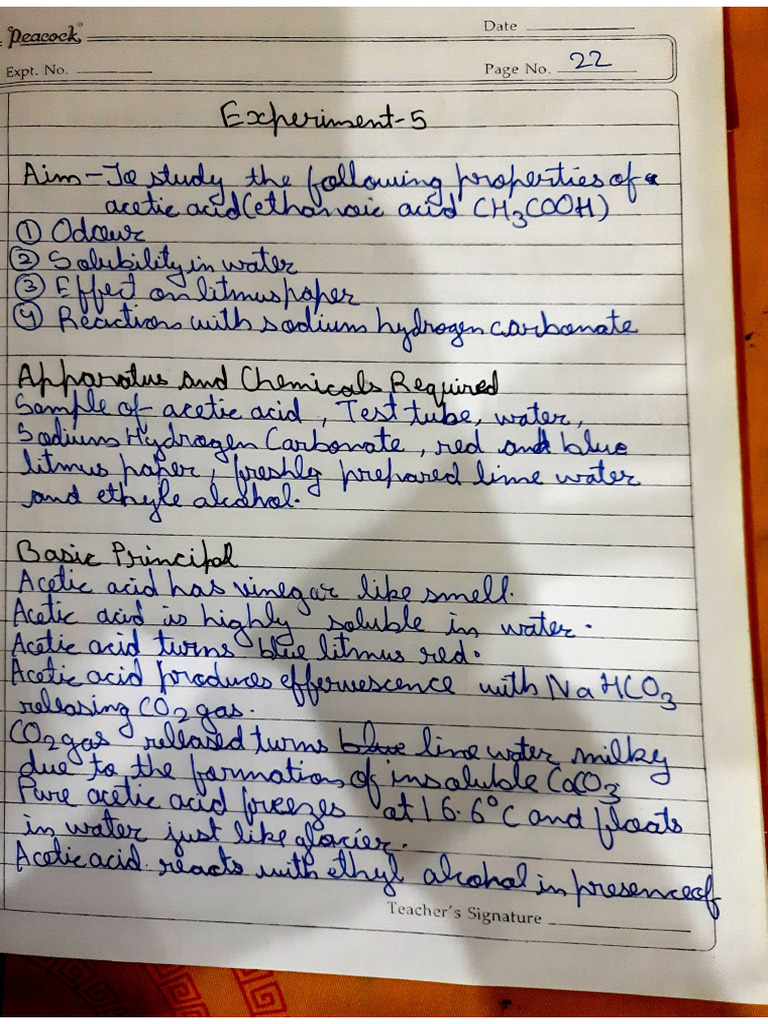 Peacock
Date
Expt. No.
Page No. 22
Experiment-5
Aim - To study the following properties of
acetic acid (ethanoic acid CH3COOH)
① Odour
② Solubility in water
③ Effect on litmus paper
④ Reaction with sodium hydrogen carbonate
Apparatus and Chemicals Required
Sample of acetic acid, Test tube, water,
Sodium Hydrogen Carbonate, red and blue
litmus paper, freshly prepared lime water
and ethyle alcohol.
Basic Principal
Acetic acid has vinegar like smell.
Acetic acid is highly soluble in water.
Acetic acid turns blue litmus red.
Acetic acid produces effervescence with NaHCO3
releasing CO2 gas.
CO2 gas released turns blue lime water milky
due to the formation of insoluble CaCO3
Pure acetic acid freezes at 16.6°C and floats
in water just like glacier.
Acetic acid reacts with ethyl alcohol in presence of
Teacher's Signature